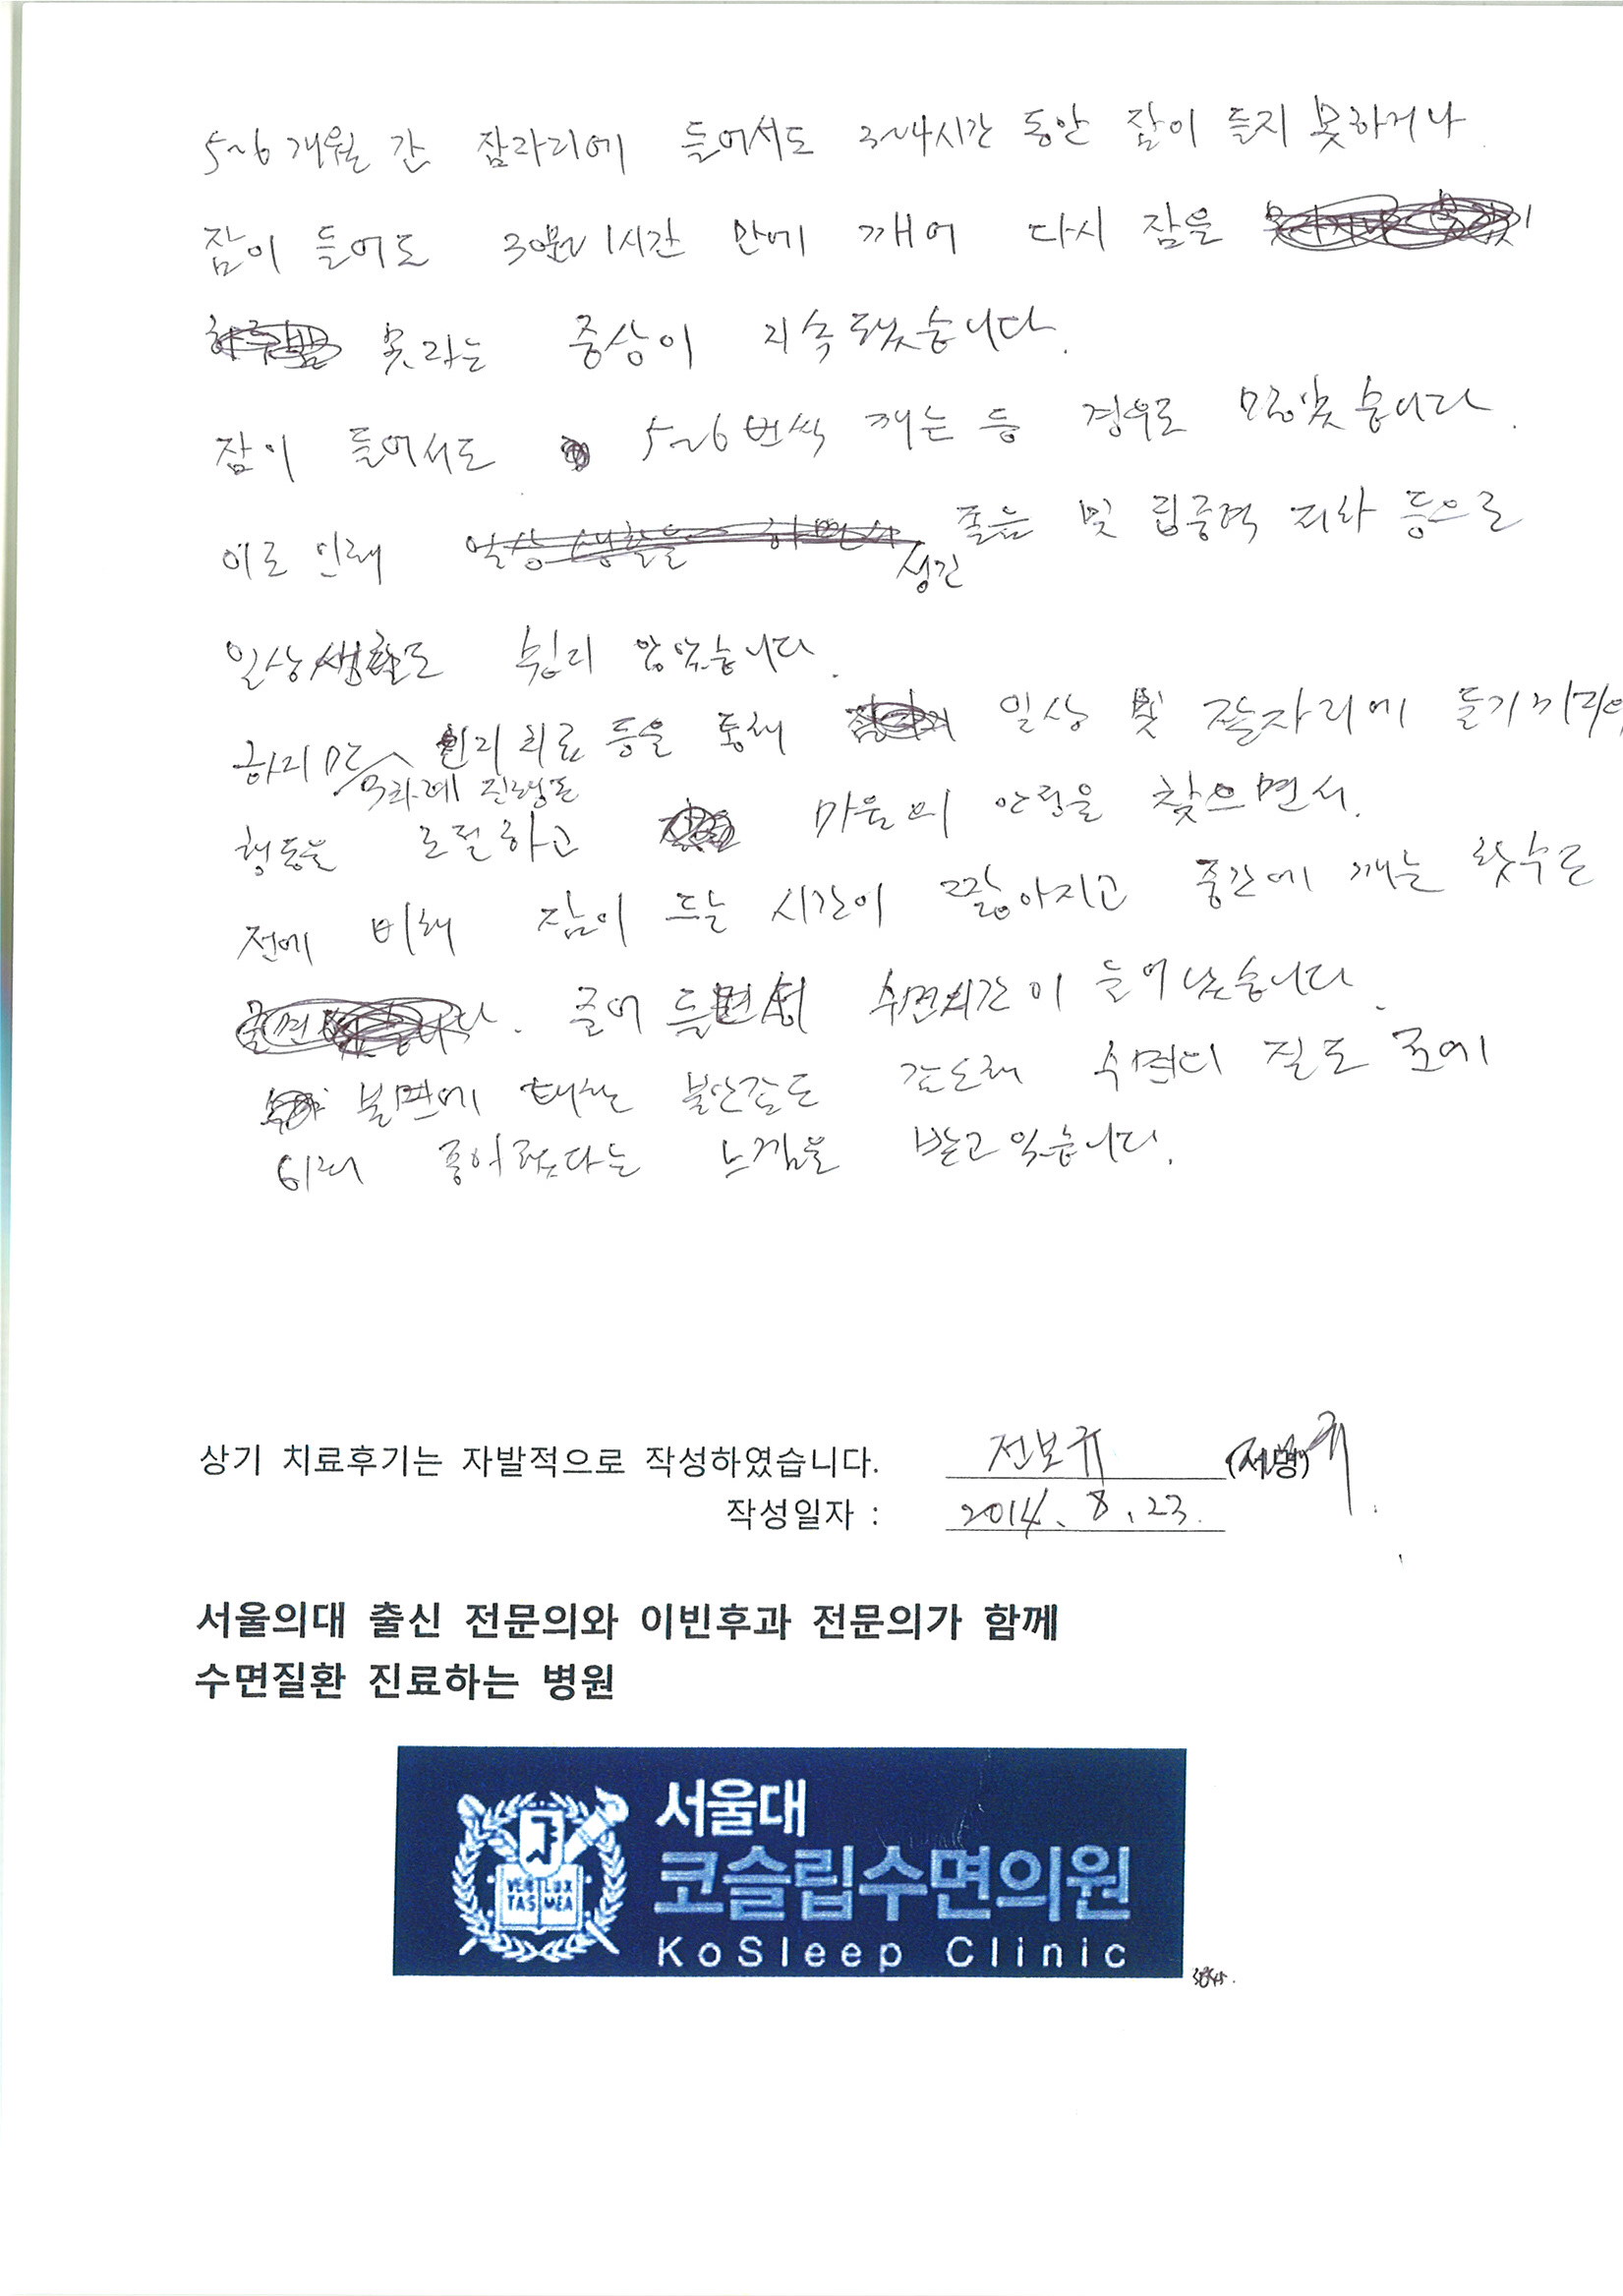 5~6개월 간 잠자리에 들어서도 3~4시간 동안 잠이 들지 못하거나
잠이 들어도 30분~1시간 만에 깨어 다시 잠을
못자는 증상이 지속됐습니다.
잠이 들어서도 5~6번씩 깨는 등 경우로 많았습니다.
이로 인해 졸음 및 집중력 저하 등으로
생긴
일상생활도 쉽지 않았습니다.
하지만 인지치료 등을 통해 일상 및 잠자리에 들기
6차례 진행된
행동을 조절하고 마음의 안정을 찾으면서
전에 비해 잠이 드는 시간이 짧아지고 중간에 깨는 횟수도
줄어 들면서 수면시간이 늘어났습니다.
불면에 대한 불안감도 감소해 수면의 질도 전에
비해 좋아졌다는 느낌을 받고 있습니다.
상기 치료후기는 자발적으로 작성하였습니다. 전보규 (서명)
작성일자 : 2014. 8. 23.
서울의대 출신 전문의와 이빈후과 전문의가 함께
수면질환 진료하는 병원
VERI LUX
TAS MEA
서울대
코슬립수면의원
KoSleep Clinic